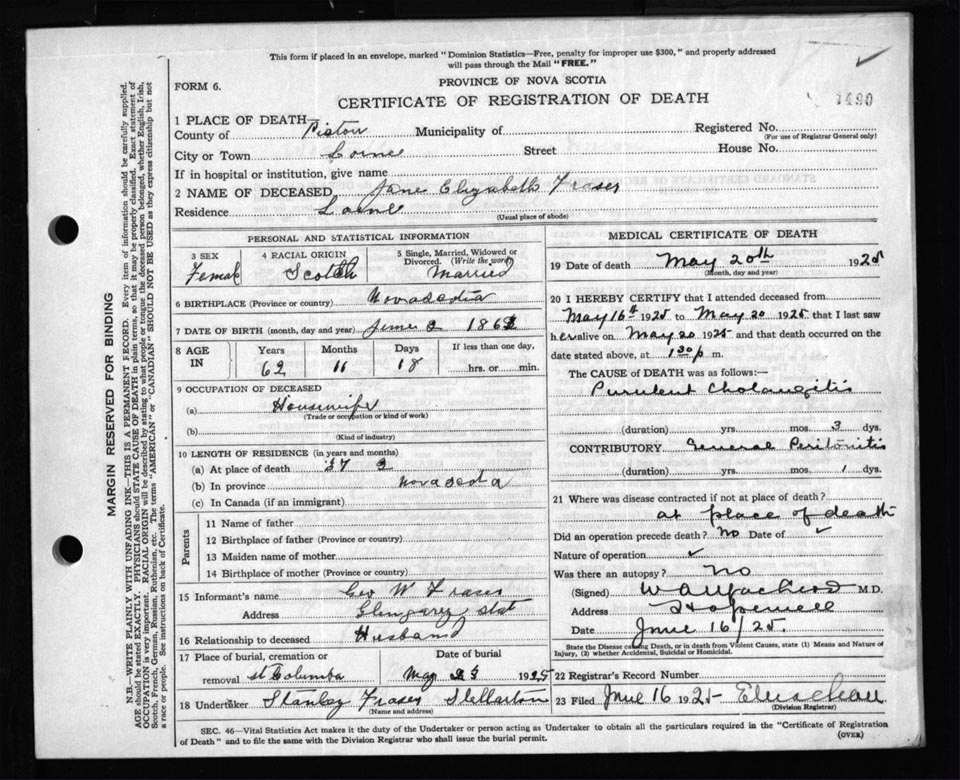 This form if placed in an envelope, marked "Dominion Statistics—Free, penalty for improper use $300," and properly addressed
will pass through the Mail "FREE."
FORM 6.
PROVINCE OF NOVA SCOTIA
CERTIFICATE OF REGISTRATION OF DEATH
1490
1 PLACE OF DEATH—
County of Pictou Municipality of Registered No.
(For use of Registrar General only)
City or Town Lorne Street House No.
If in hospital or institution, give name
2 NAME OF DECEASED Jane Elizabeth Fraser
Residence Lorne
(Usual place of abode)
PERSONAL AND STATISTICAL INFORMATION
3 SEX Female
4 RACIAL ORIGIN Scotch
5 Single, Married, Widowed or Divorced. (Write the word) Married
6 BIRTHPLACE (Province or country) Nova Scotia
7 DATE OF BIRTH (month, day and year) June 2 1862
8 AGE IN Years Months Days If less than one day,
62 11 18 hrs. or min.
9 OCCUPATION OF DECEASED
(a) Housewife
(Trade or occupation or kind of work)
(b)
(Kind of industry)
10 LENGTH OF RESIDENCE (in years and months)
(a) At place of death 37
(b) In province Nova Scotia
(c) In Canada (if an immigrant)
Parents
11 Name of father
12 Birthplace of father (Province or country)
13 Maiden name of mother
14 Birthplace of mother (Province or country)
15 Informant's name Geo W Fraser
Address Glengarry Stat
16 Relationship to deceased Husband
17 Place of burial, cremation or Date of burial
removal St Columba May 1925
18 Undertaker Stanley Fraser Stellarton
(Name and address)
MEDICAL CERTIFICATE OF DEATH
19 Date of death May 20th 1925
(Month, day and year)
20 I HEREBY CERTIFY that I attended deceased from
May 16th 1925 to May 20 1925 that I last saw
her alive on May 20 1925 and that death occurred on
date stated above, at 1 30 p m.
The CAUSE OF DEATH was as follows:—
Purulent Cholangitis
(duration) yrs. mos. 3 dys.
CONTRIBUTORY General Peritonitis
(duration) yrs. mos. 1 dys.
21 Where was disease contracted if not at place of death?
at place of death
Did an operation precede death? No Date of ✓
Nature of operation ✓
Was there an autopsy? NO
(Signed) M.D.
Address Hopewell
Date June 16/25.
State the Disease causing Death, or in death from Violent Causes, state (1) Means and Nature of
Injury, (2) whether Accidental, Suicidal or Homicidal.
22 Registrar's Record Number
23 Filed June 16 1925
(Division Registrar)
SEC. 46—Vital Statistics Act makes it the duty of the Undertaker or person acting as Undertaker to obtain all the particulars required in the "Certificate of Registration
of Death" and to file the same with the Division Registrar who shall issue the burial permit.
(OVER)
MARGIN RESERVED FOR BINDING
N.B.—WRITE PLAINLY WITH UNFADING INK—THIS IS A PERMANENT RECORD. Every item of information should be carefully supplied.
AGE should be stated EXACTLY. PHYSICIANS should STATE CAUSE OF DEATH in plain terms, so that it may be properly classified. Exact statement of
OCCUPATION is very important. RACIAL ORIGIN will be described by stating to what people or tongue the deceased person belonged, whether English, Irish,
Scotch, French, German, Russian, Ruthenian, etc. The terms "AMERICAN" or "CANADIAN" SHOULD NOT BE USED as they express citizenship but not
a race or people. See instructions on back of Certificate.